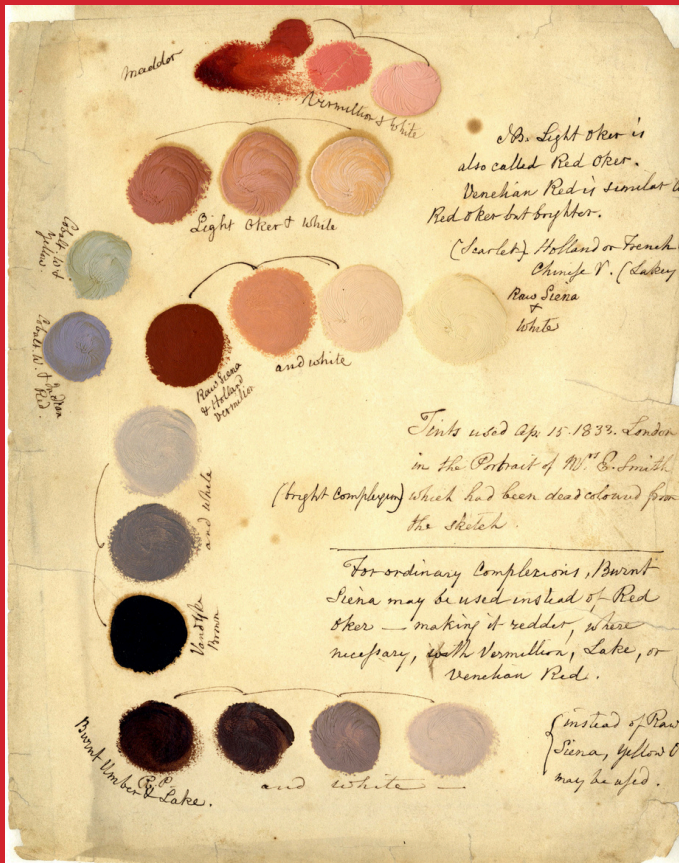 madder
Vermillion & White
NB. Light Oker is
also called Red Oker.
Venetian Red is similar
Red oker but brighter.
Light Oker & White
(Scarlet) Holland or French
Chinese V. (Lakey
Cobalt W &
Yellow.
Raw Siena
&
White
Cobalt W. &
Red.
and white
Raw Siena
& Holland
Vermilion
Tints used Ap. 15. 1833. London
in the Portrait of Mrs E. Smith
(bright complexion) which had been deadcoloured from
the sketch.
and white
Vandyke
Brown
For ordinary Complexions, Burnt
Siena may be used instead of Red
Oker — making it redder, where
necessary, with Vermillion, Lake, or
Venetian Red.
Burnt Umber & Lake.
and white —
instead of Raw
Siena, Yellow O
may be used.